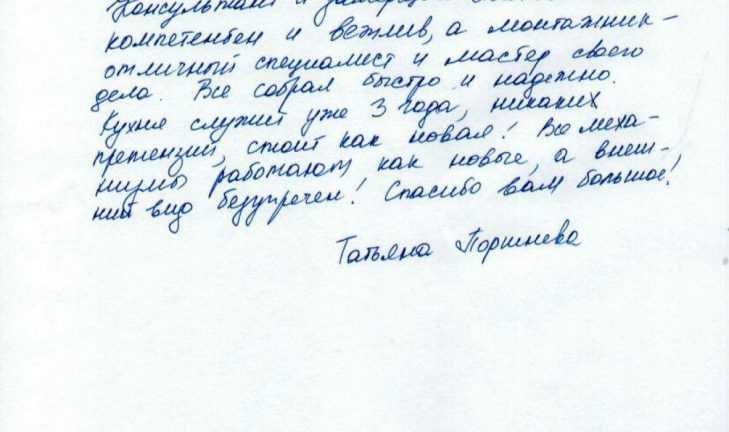 Консультант и
компетентен и вежлив, а монтажник -
отличный специалист и мастер своего
дела. Все собрал быстро и надежно.
Кухня служит уже 3 года, никаких
претензий, стоит как новая! Все меха-
низмы работают как новые, а внеш-
ний вид безупречен! Спасибо вам большое!
Татьяна Поршнева